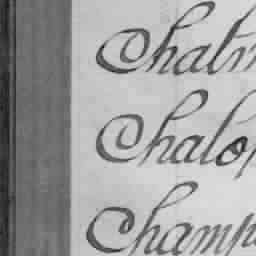 Chalm
Chalop
Champa